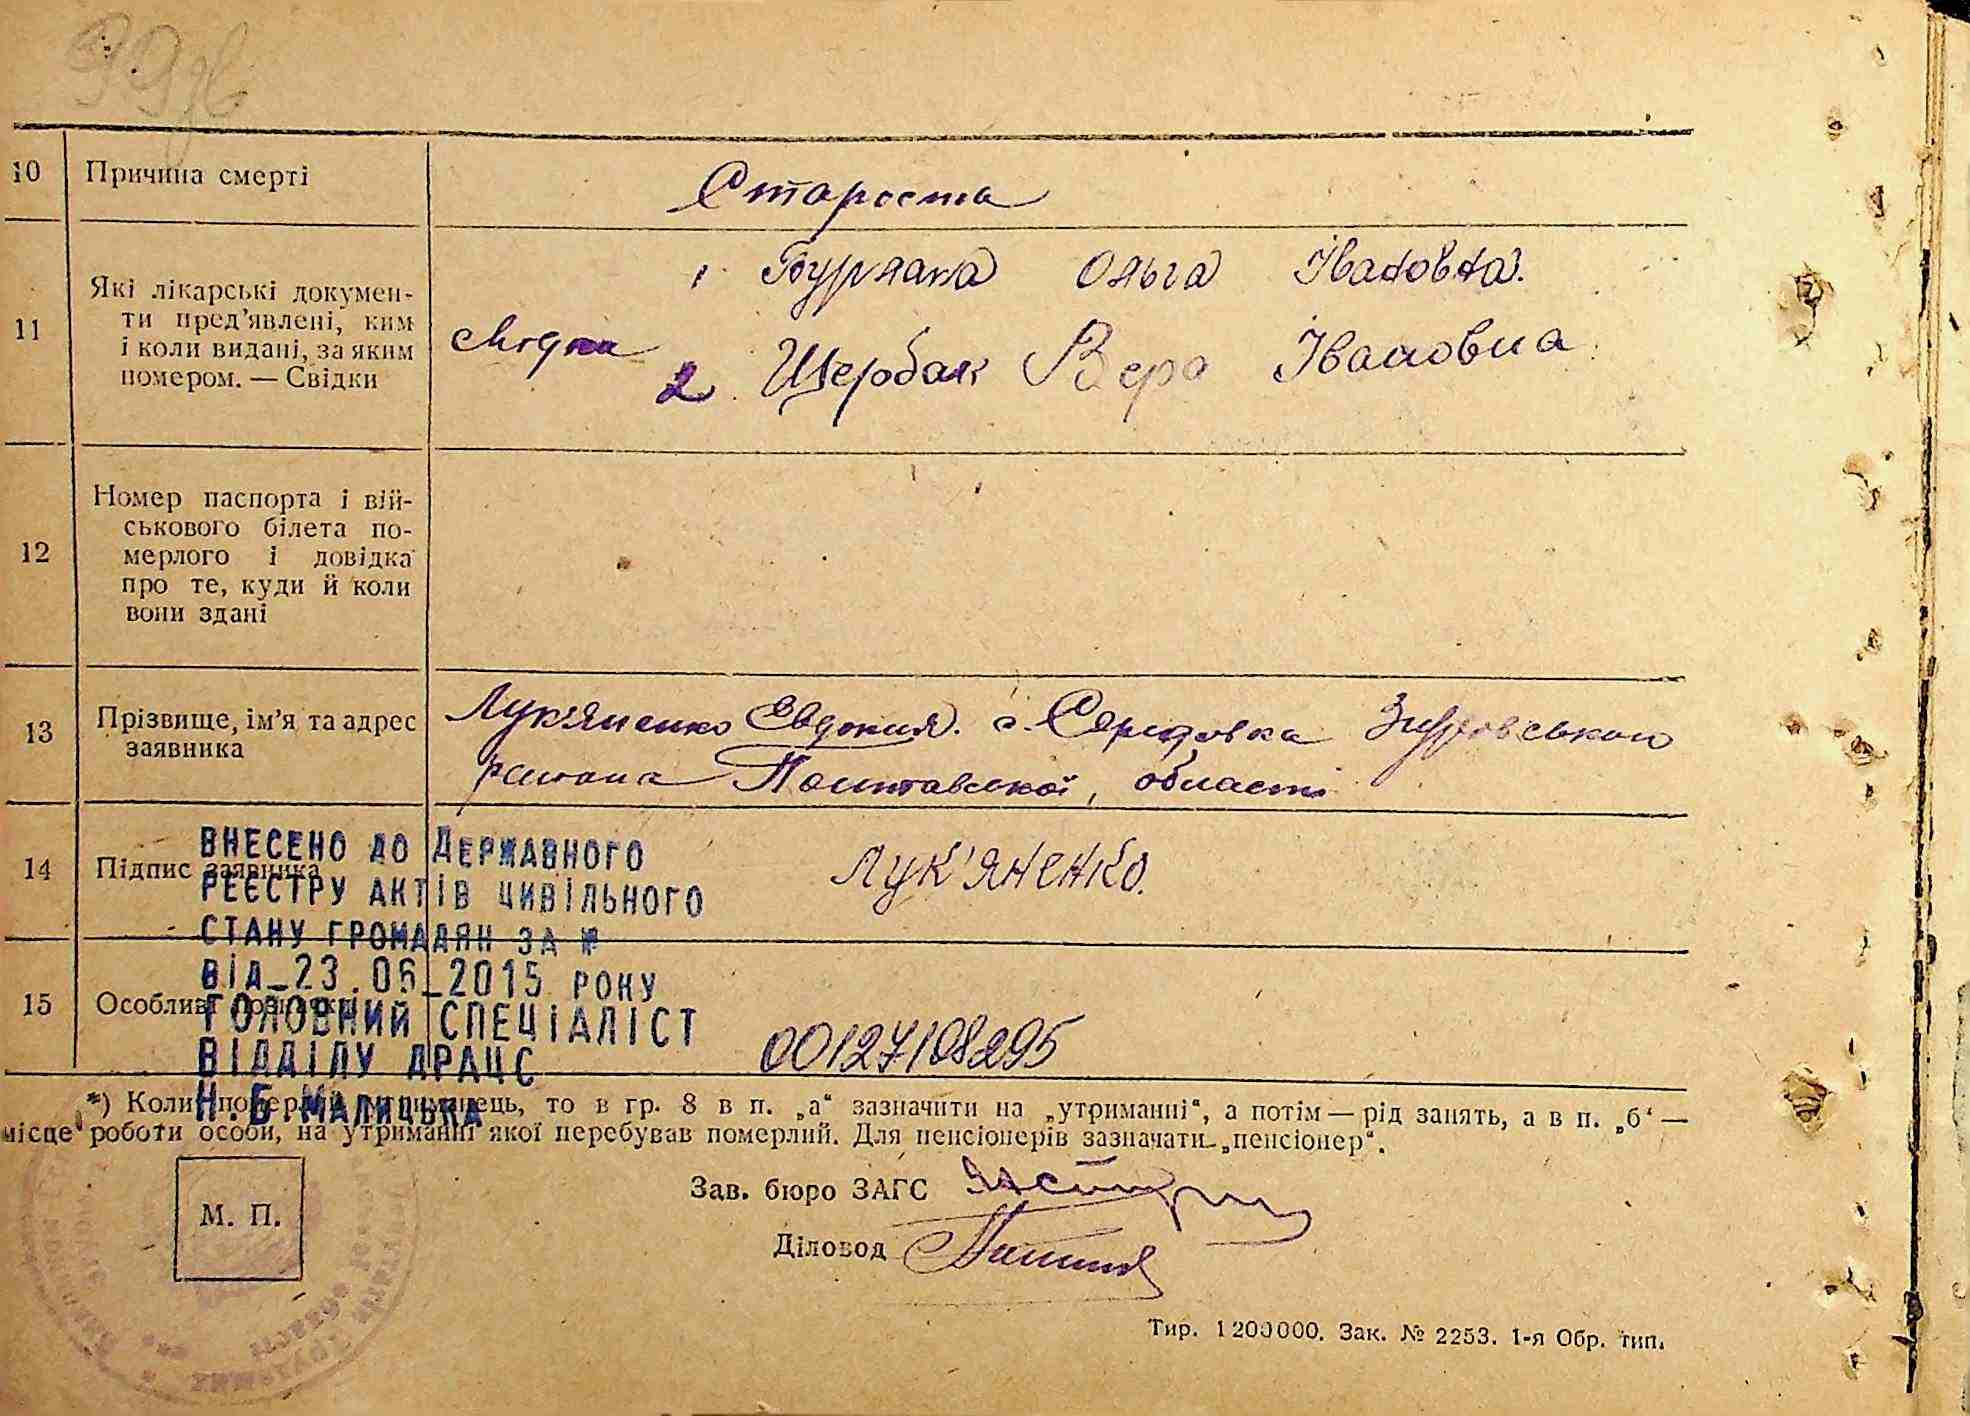 99зв
10 Причина смерті Старость
11 Які лікарські документи пред'явлені, ким і коли видані, за яким номером. — Свідки
1 Бурлака Ольга Івановна.
Свідки
2. Щербак Вера Івановна
12 Номер паспорта і вій-
ськового білета по-
мерлого і довідка
про те, куди й коли
вони здані
13 Прізвище, ім'я та адрес
заявника
Лук'яненко Евдокия. с. Середовка Згуровського
района Полтавської, області
14 Підпис заявника
Лук'яненко.
15 Особливі позначки
ВНЕСЕНО ДО ДЕРЖАВНОГО
РЕЄСТРУ АКТІВ ЦИВІЛЬНОГО
СТАНУ ГРОМАДЯН ЗА №
ВІД_23.06_2015 РОКУ
ГОЛОВНИЙ СПЕЦІАЛІСТ
ВІДДІЛУ ДРАЦС
Н.Б МАЛИЦЬКА
00127108295
*) Коли померлий утриманець, то в гр. 8 в п. „а“ зазначити на „утриманні“, а потім — рід занять, а в п. „б“ —
місце роботи особи, на утриманні якої перебував померлий. Для пенсіонерів зазначати „пенсіонер“.
Зав. бюро ЗАГС
М. П.
Діловод
Тир. 1200000. Зак. № 2253. 1-я Обр. тип.